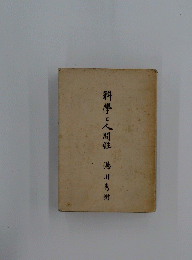 科學と人間性
湯川秀樹